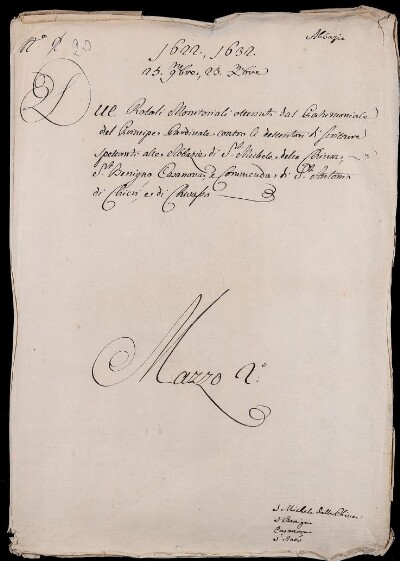 Abazie
N.° 20
1622., 1632.
25. 9bre, 23. Xbre
Due Rotoli Monitoriali ottenuti dal Patrimoniale
del Principe Cardinale contro li detentori di scritture
spettanti alle Abbazie di S. Michele della Chiusa,
S. Benigno Casanova, e Commenda di S. Antonio
di Chieri e di Chivasso
Mazzo 2.°
S. Michele della Chiusa
S. Benigno
Casanova
S. Anto